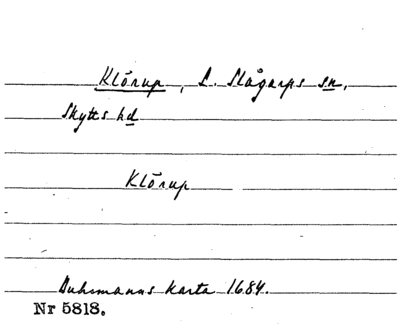 Klörup, L. Slågarps sn,
Skytts hd
Klörup
Buhrmanns karta 1684.
Nr 5818.